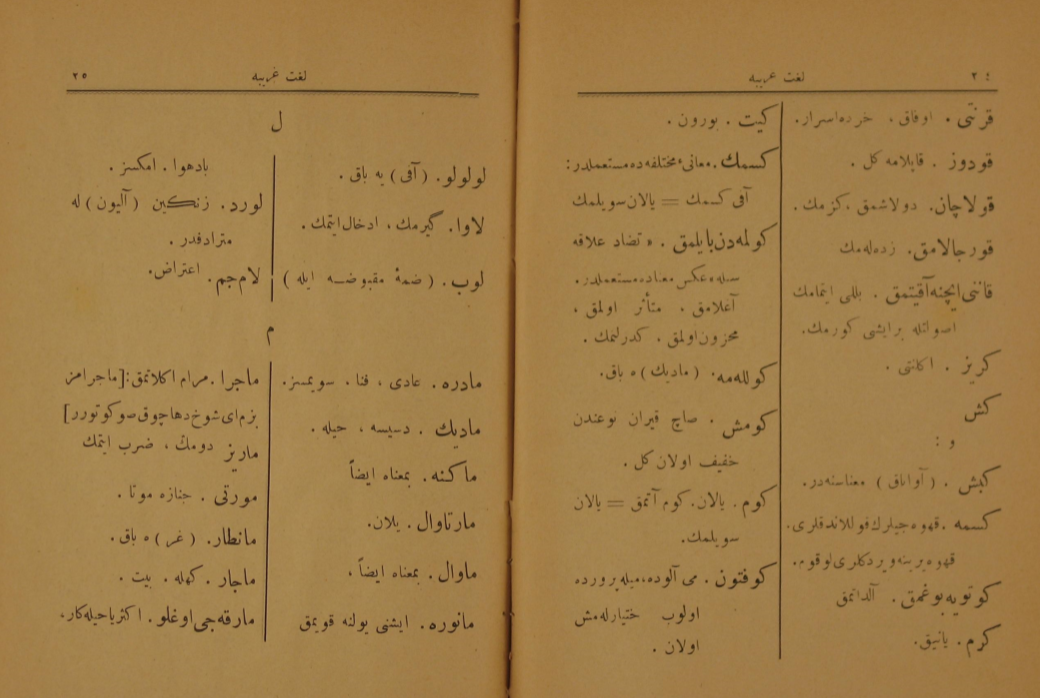 ٢٤
لغت غریبه
قرنتی . اوفاق ، خرده‌اسرار .
قودوز . قاپلامه کل .
قولاچان . دولاشمق ، کزمك .
قورجالامق . زده‌له‌مك
قاننی ایچنه‌آقیتمق . بللی ایتمامك
اصولتله برایشی کورمك .
کریز . اکلنتی .
کش
و :
کبش . ( آواناق ) معناسنه‌در .
کسمه . قهوه‌جیلرك قوللاندقلری .
قهوه یرینه ویردکلری لوقوم .
کوتویه بوغمق . آلداتمق
کرم . یانیق .
کیت . بورون .
کسمك . معانیء مختلفه‌ده مستعملدر :
آفی کسمك = یالان سویلمك
کولمه‌دن بایلمق . « تضاد علاقه
سیله » عکس معناده مستعملدر .
آغلامق . متأثر اولمق ،
محزون اولمق . کدرلنمك .
کولله‌مه . ( مادیك ) ه باق .
کومش . صاچ قیران نوعندن
خفیف اولان کل .
کوم . یالان . کوم آتمق = یالان
سویلمك .
کوفتون . می آلوده ، میله پرورده
اولوب ختیارله‌مش
اولان .
لغت غریبه
٢٥
ل
لولولو . ( آفی ) یه باق .
لاوا . گیرمك ، ادخال ایتمك .
لوب . ( ضمهٔ مقبوضه ایله )
بادهوا . امکسز .
لورد . زنکین ( آلیون ) له
مترادفدر .
لام‌جم . اعتراض .
م
مادره . عادی ، فنا . سویمسز .
مادیك . دسیسه ، حیله .
ماکنه . بمعناه ایضاً
مارتاوال . یلان .
ماوال . بمعناه ایضاً ،
مانوره . ایشنی یولنه قویمق
ماجرا . مرام اکلاتمق : [ ماجرامز
بزم ای شوخ دها چوق صو کوتورر ]
ماریز دومك ، ضرب ایتمك
مورتی . جنازه موتا .
مانطار . ( غر ) ه باق .
ماجار . کهله . بیت .
مارقه‌جی اوغلو . اکثریا حیله‌کار .